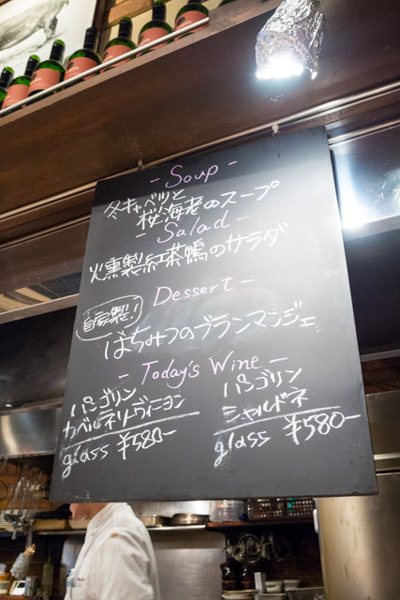 - Soup -
冬キャベツと
桜海老のスープ
- Salad -
火燻製紅茶鴨のサラダ
Dessert -
自家製!
はちみつのブランマンジェ
- Today's Wine -
パンゴリン
カベルネソーヴィニヨン
glass ¥580-
パンゴリン
シャルドネ
glass ¥580-